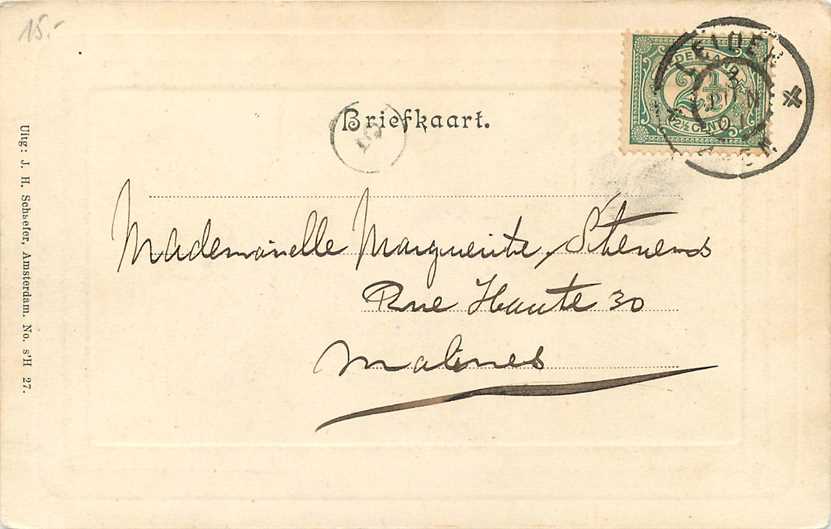 15.-
NEDERLAND
2½
2½ CENT
LEIDEN
Briefkaart.
Mademoiselle Marguerite Stevens
Rue Haute 30
Malines
Uitg: J. H. Schaefer, Amsterdam. No. s'H 27.